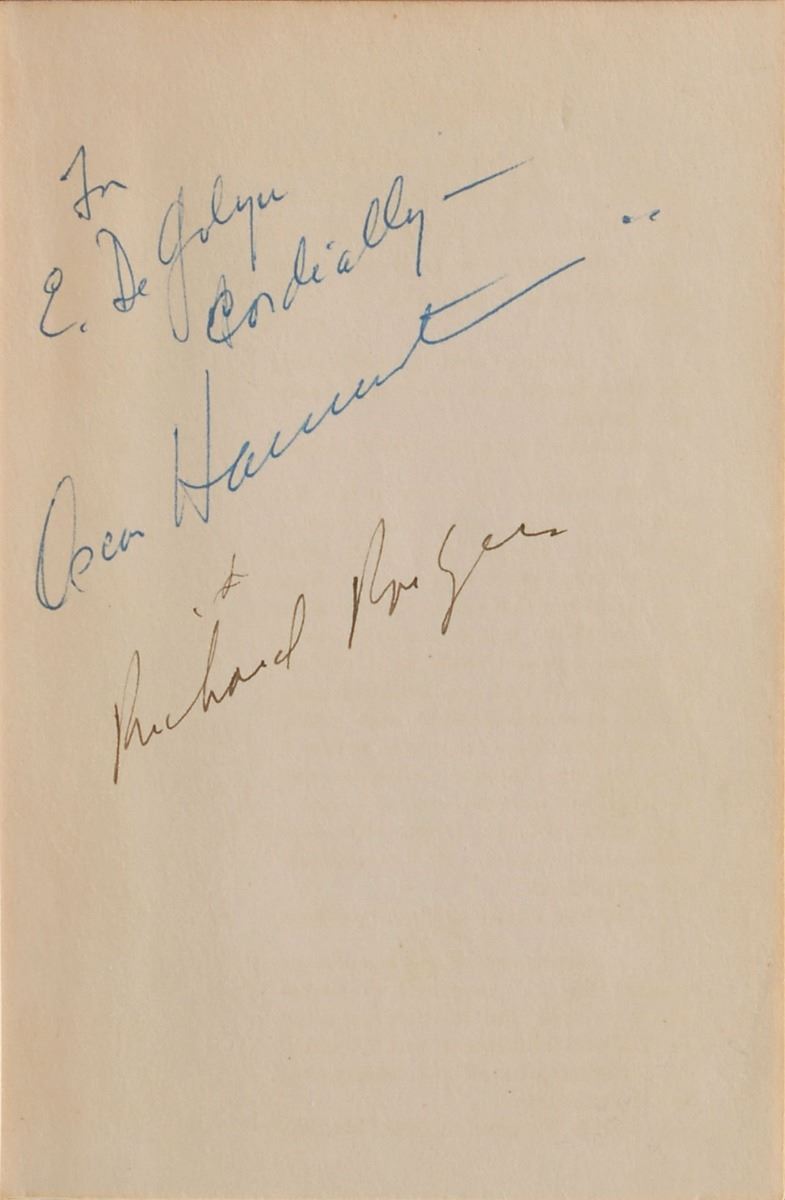 For
E. De Golyer
Cordially —
Oscar Hammerstein
&
Richard Rodgers